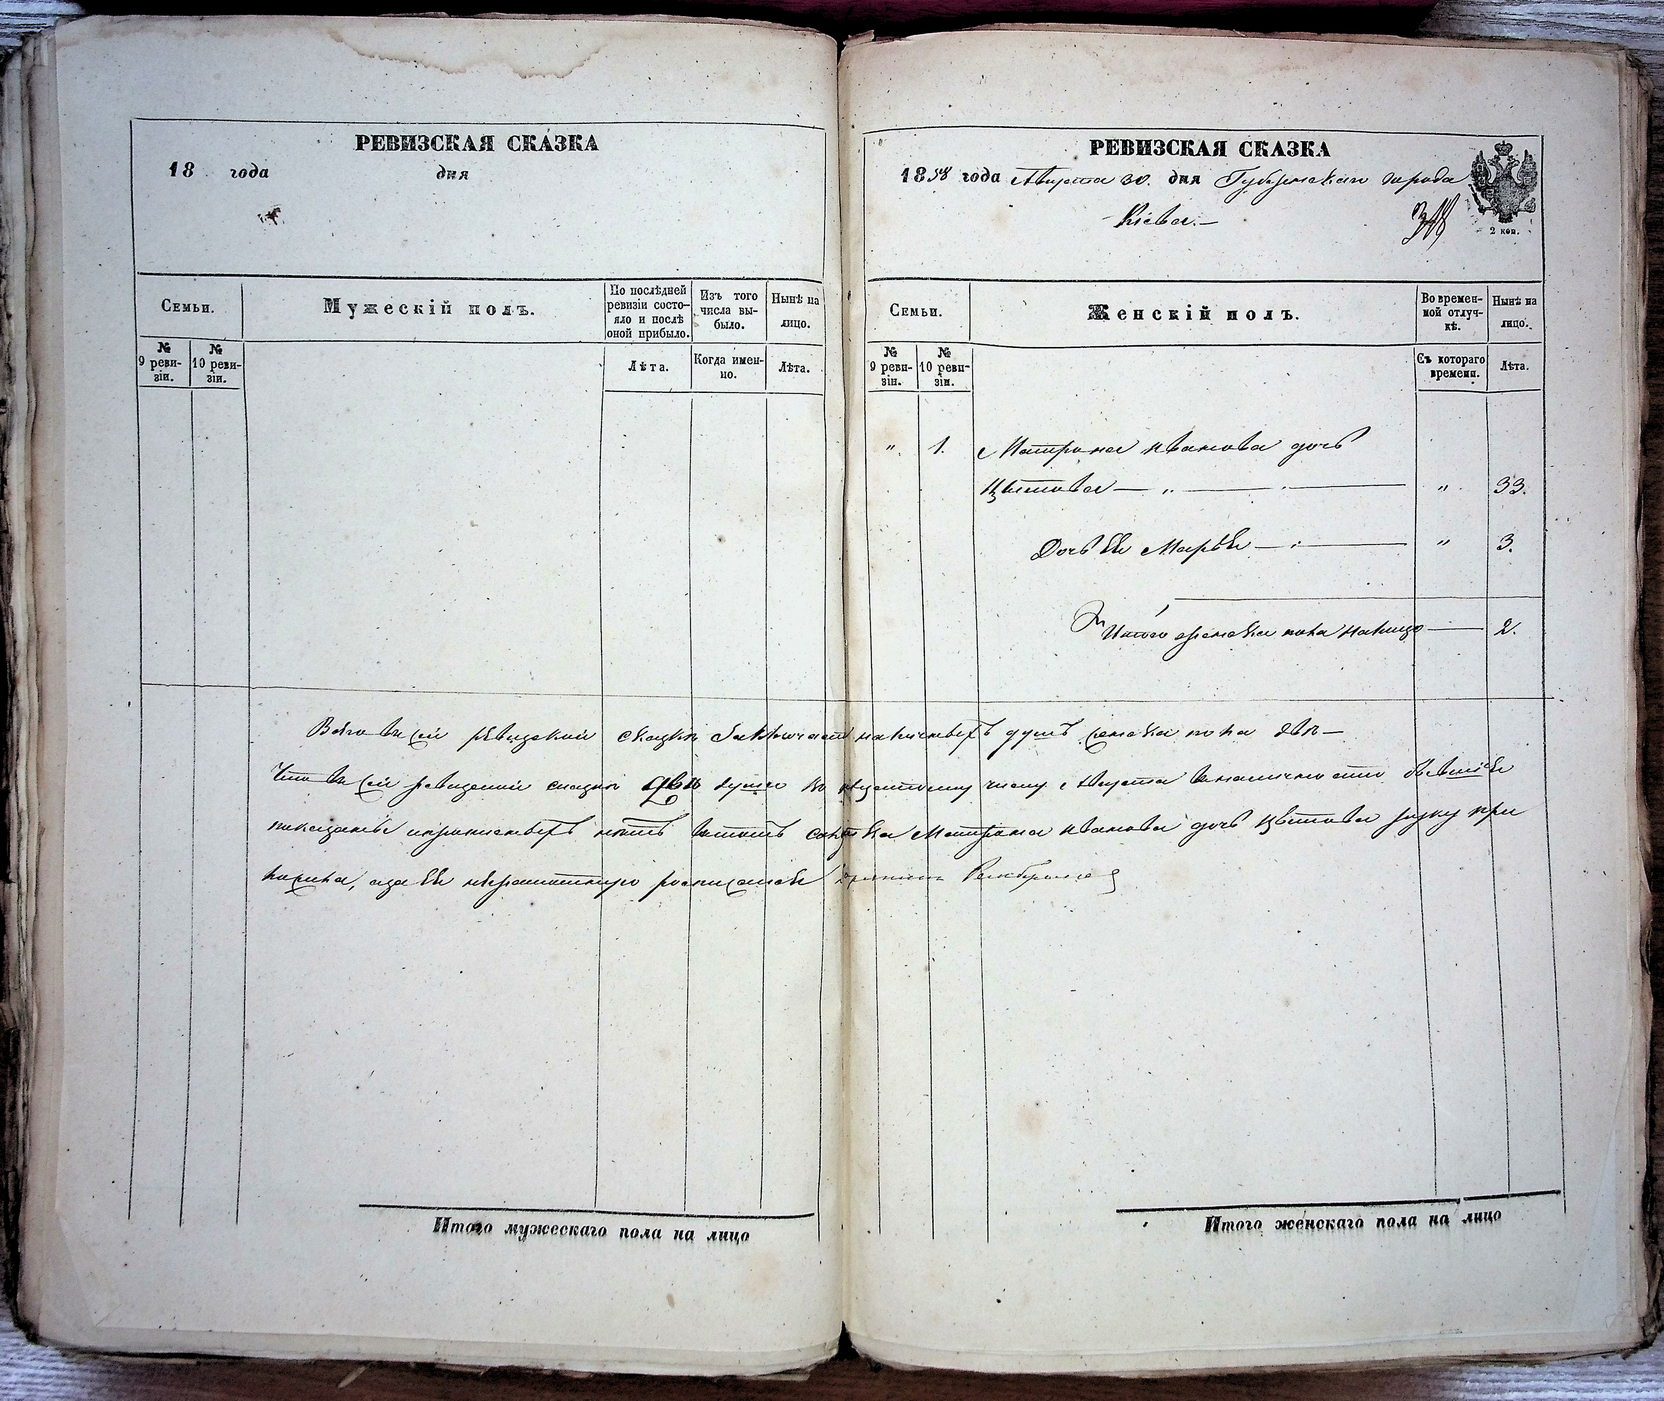 РЕВИЗСКАЯ СКАЗКА
18 года дня
Семьи.
Мужескій полъ.
По послѣдней ревизіи состояло и послѣ оной прибыло.
Изъ того числа выбыло.
Нынѣ на лицо.
№ 9 ревизіи.
№ 10 ревизіи.
Лѣта.
Когда именно.
Лѣта.
Итого мужескаго пола на лицо
РЕВИЗСКАЯ СКАЗКА
1858 года Августа 30. дня Губернскаго города
Кіева.—
2 коп.
Семьи.
Женскій полъ.
Во временной отлучкѣ.
Нынѣ на лицо.
№ 9 ревизіи.
№ 10 ревизіи.
Съ котораго времени.
Лѣта.
" 1. Матрона Иванова дочь
Цвѣтова — " — " 33.
Дочь Ея Марья — " 3.
Итого женска пола налицо — 2.
Всего въ сей ревизской сказкѣ заключается наличныхъ душъ женска пола двѣ —
Что въ сей ревизской сказкѣ двѣ души по тридцатому числу Августа въ наличности бывшія
показаны и прописныхъ нѣтъ въ томъ сказка Матрона Иванова дочь Цвѣтова руку при
ложила, а за Ея неграмотную росписался
Итого женскаго пола на лицо